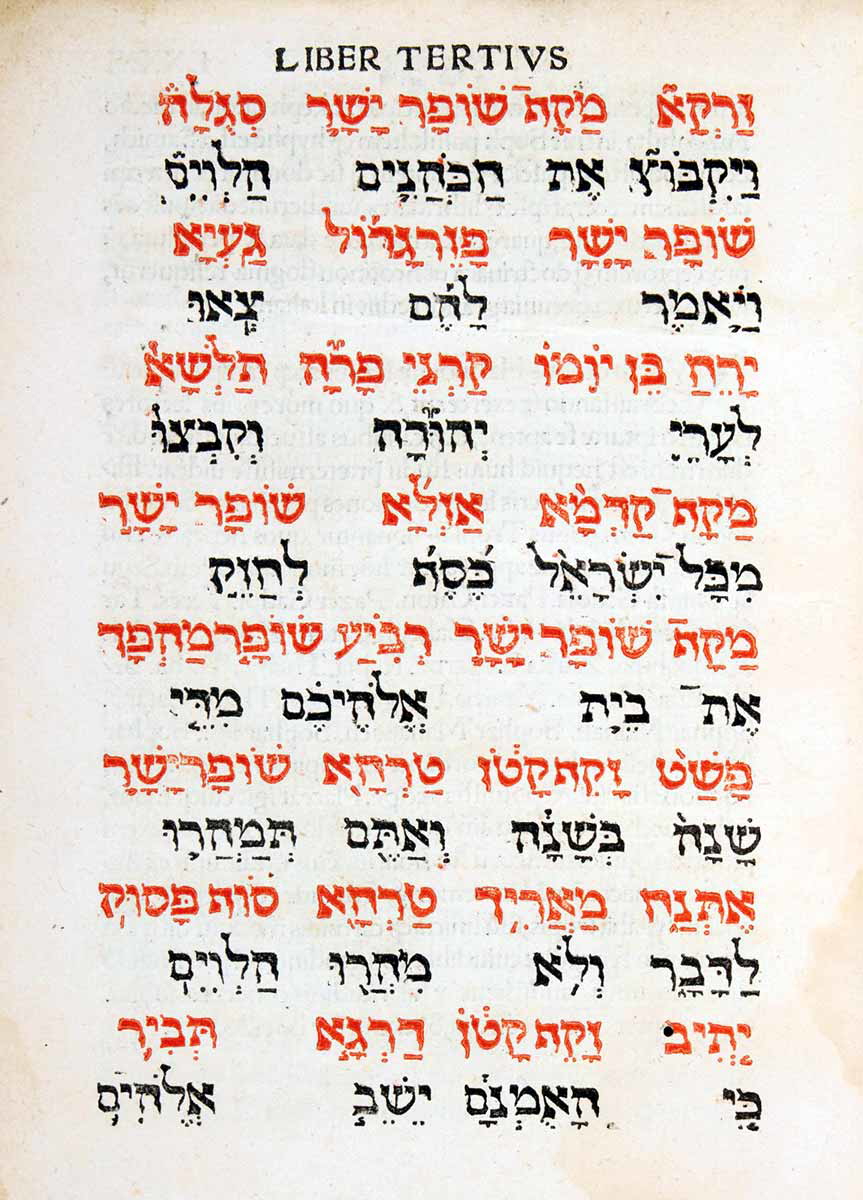 LIBER TERTIVS
זַרְקָא מַקָּף־ שׁוֹפָר יָשָׁר סִגְלָה
וַיִּקְבּוֹץ אֶת הַכֹּהֲנִים הַלְוִיִּם
שׁוֹפָר יָשָׁר פָּזֵרגָּדוֹל גַּעְיָא
וַיֹּאמֶר לָהֶם צְאוּ
יָרֵחַ בֶּן יוֹמוֹ קַרְנֵי פָרָה תַּלְשָׁא
לְעָרֵי יְהוּדָה וְקִבְצוּ
מַקָּף־ קַדְמָא אוֹלָא שׁוֹפָר יָשָׁר
מִכָּל־יִשְׂרָאֵל כֶּסֶף לְחַזֵּק
מַקָּף־ שׁוֹפָר יָשָׁר רְבִיעַ שׁוֹפָר מַהְפָּךְ
אֶת־ בֵּית אֱלֹהֵיכֶם מִדֵּי
פָּשֵׁט זָקֵף קָטֹן טַרְחָא שׁוֹפָר יָשָׁר
שָׁנָה בְּשָׁנָה וְאַתֶּם תְּמַהֲרוּ
אֶתְנַח מַאֲרִיךְ טַרְחָא סוֹף פָּסוּק
לַדָּבָר וְלֹא מִהֲרוּ הַלְוִיִּם
יְתִיב זָקֵף קָטֹן דַּרְגָּא תְּבִיר
כִּי הַאֻמְנָם יֵשֵׁב אֱלֹהִים